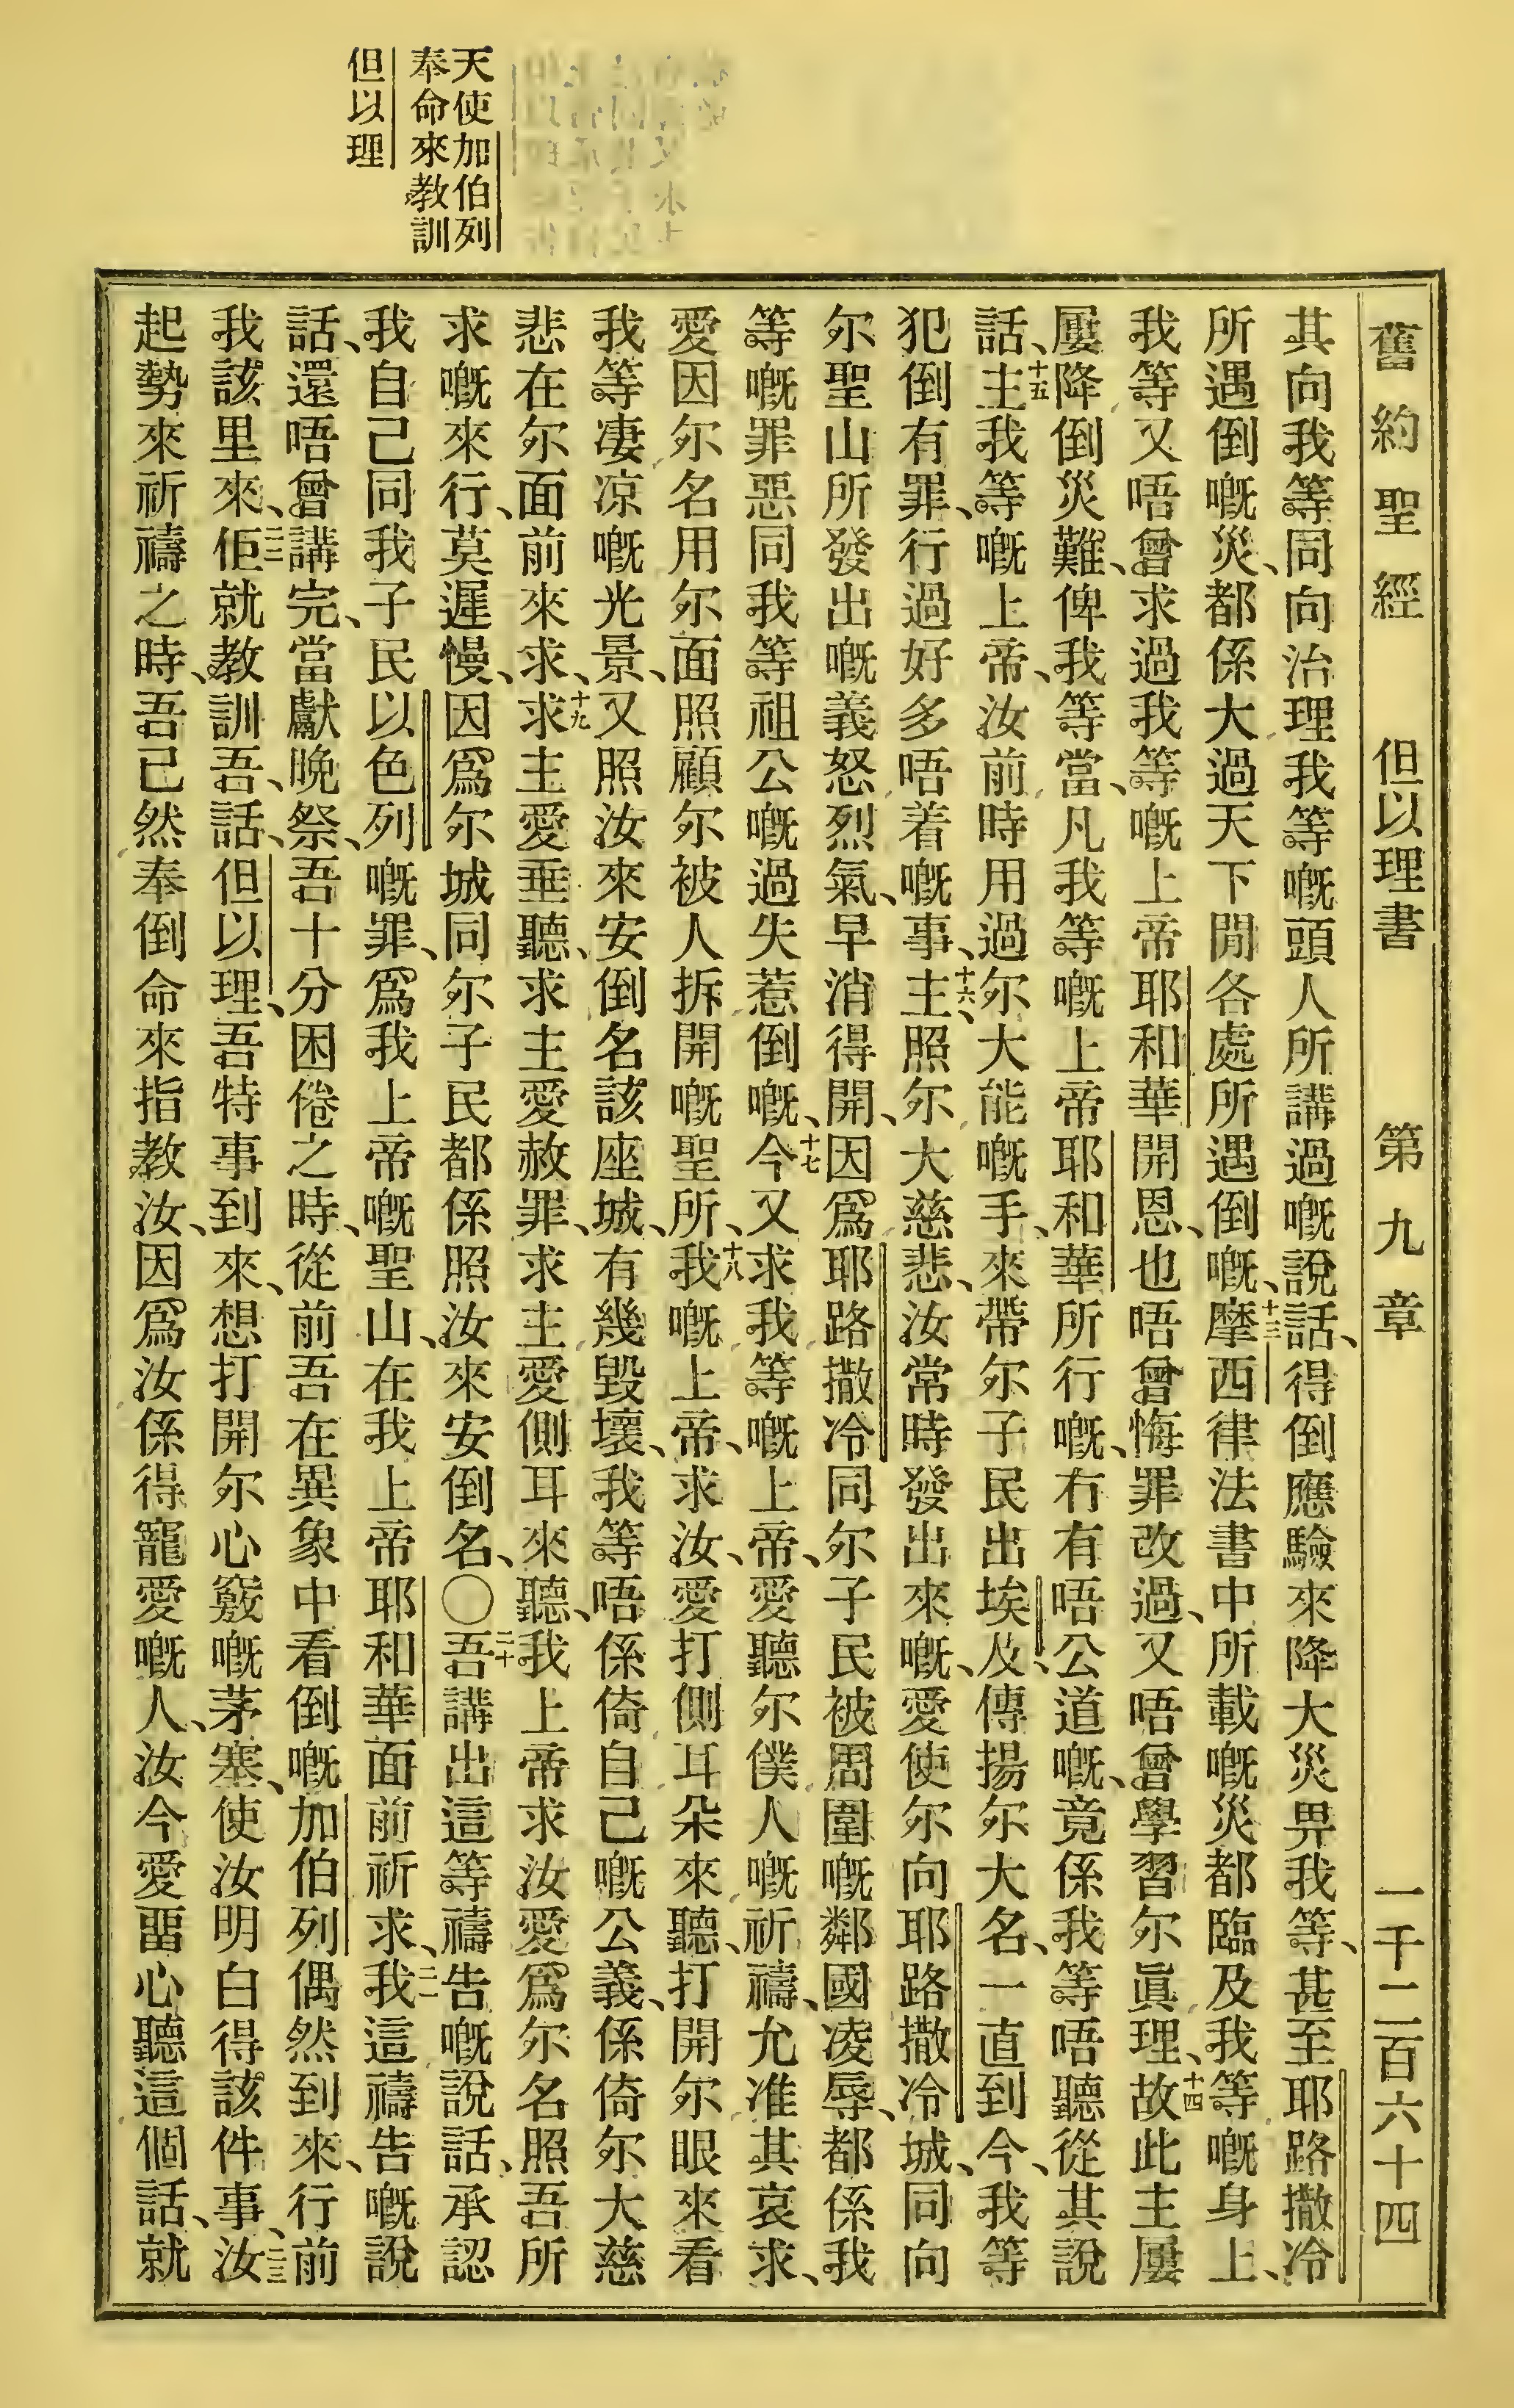 舊約聖經　但以理書　第九章　一千二百六十四
其向我等同向治理我等嘅頭人所講過嘅說話、得倒應驗來降大災畀我等、甚至耶路撒冷
所遇倒嘅災、都係大過天下間各處所遇倒嘅、十三摩西律法書中所載嘅災都臨及我等嘅身上、
我等又唔曾求過我等嘅上帝耶和華開恩、也唔曾悔罪改過、又唔曾學習尔眞理、十四故此主屢
屢降倒災難、俾我等當、凡我等嘅上帝耶和華所行嘅、冇有唔公道嘅、竟係我等唔聽從其說
話、十五主我等嘅上帝、汝前時用過尔大能嘅手、來帶尔子民出埃及、傳揚尔大名、一直到今、我等
犯倒有罪、行過好多唔着嘅事、十六主、照尔大慈悲、汝常時發出來嘅、愛使尔向耶路撒冷城、同向
尔聖山所發出嘅義怒烈氣、早消得開、因爲耶路撒冷同尔子民被周圍嘅鄰國凌辱、都係我
等嘅罪惡同我等祖公嘅過失惹倒嘅、十七今又求我等嘅上帝、愛聽尔僕人嘅祈禱、允准其哀求、
愛因尔名用尔面照顧尔被人拆開嘅聖所、十八我嘅上帝、求汝、愛打側耳朶來聽、打開尔眼來看
我等凄凉嘅光景、又照汝來安倒名該座城、有幾毀壞、我等唔係倚自己嘅公義、係倚尔大慈
悲在尔面前來求、十九求主愛垂聽、求主愛赦罪、求主愛側耳來聽、我上帝求汝愛爲尔名照吾所
求嘅來行、莫遲慢、因爲尔城同尔子民都係照汝來安倒名、〇二十吾講出這等禱告嘅說話、承認
我自己同我子民以色列嘅罪、爲我上帝嘅聖山、在我上帝耶和華面前祈求、二一我這禱告嘅說
話、還唔曾講完、當獻晚祭、吾十分困倦之時、從前吾在異象中看倒嘅加伯列偶然到來、行前
我該里來、二二佢就教訓吾、話、但以理、吾特事到來、想打開尔心竅嘅茅塞、使汝明白得該件事、二三汝
起勢來祈禱之時、吾已然奉倒命來指教汝、因爲汝係得寵愛嘅人、汝今愛畱心聽這個話、就
天使加伯列
奉命來教訓
但以理